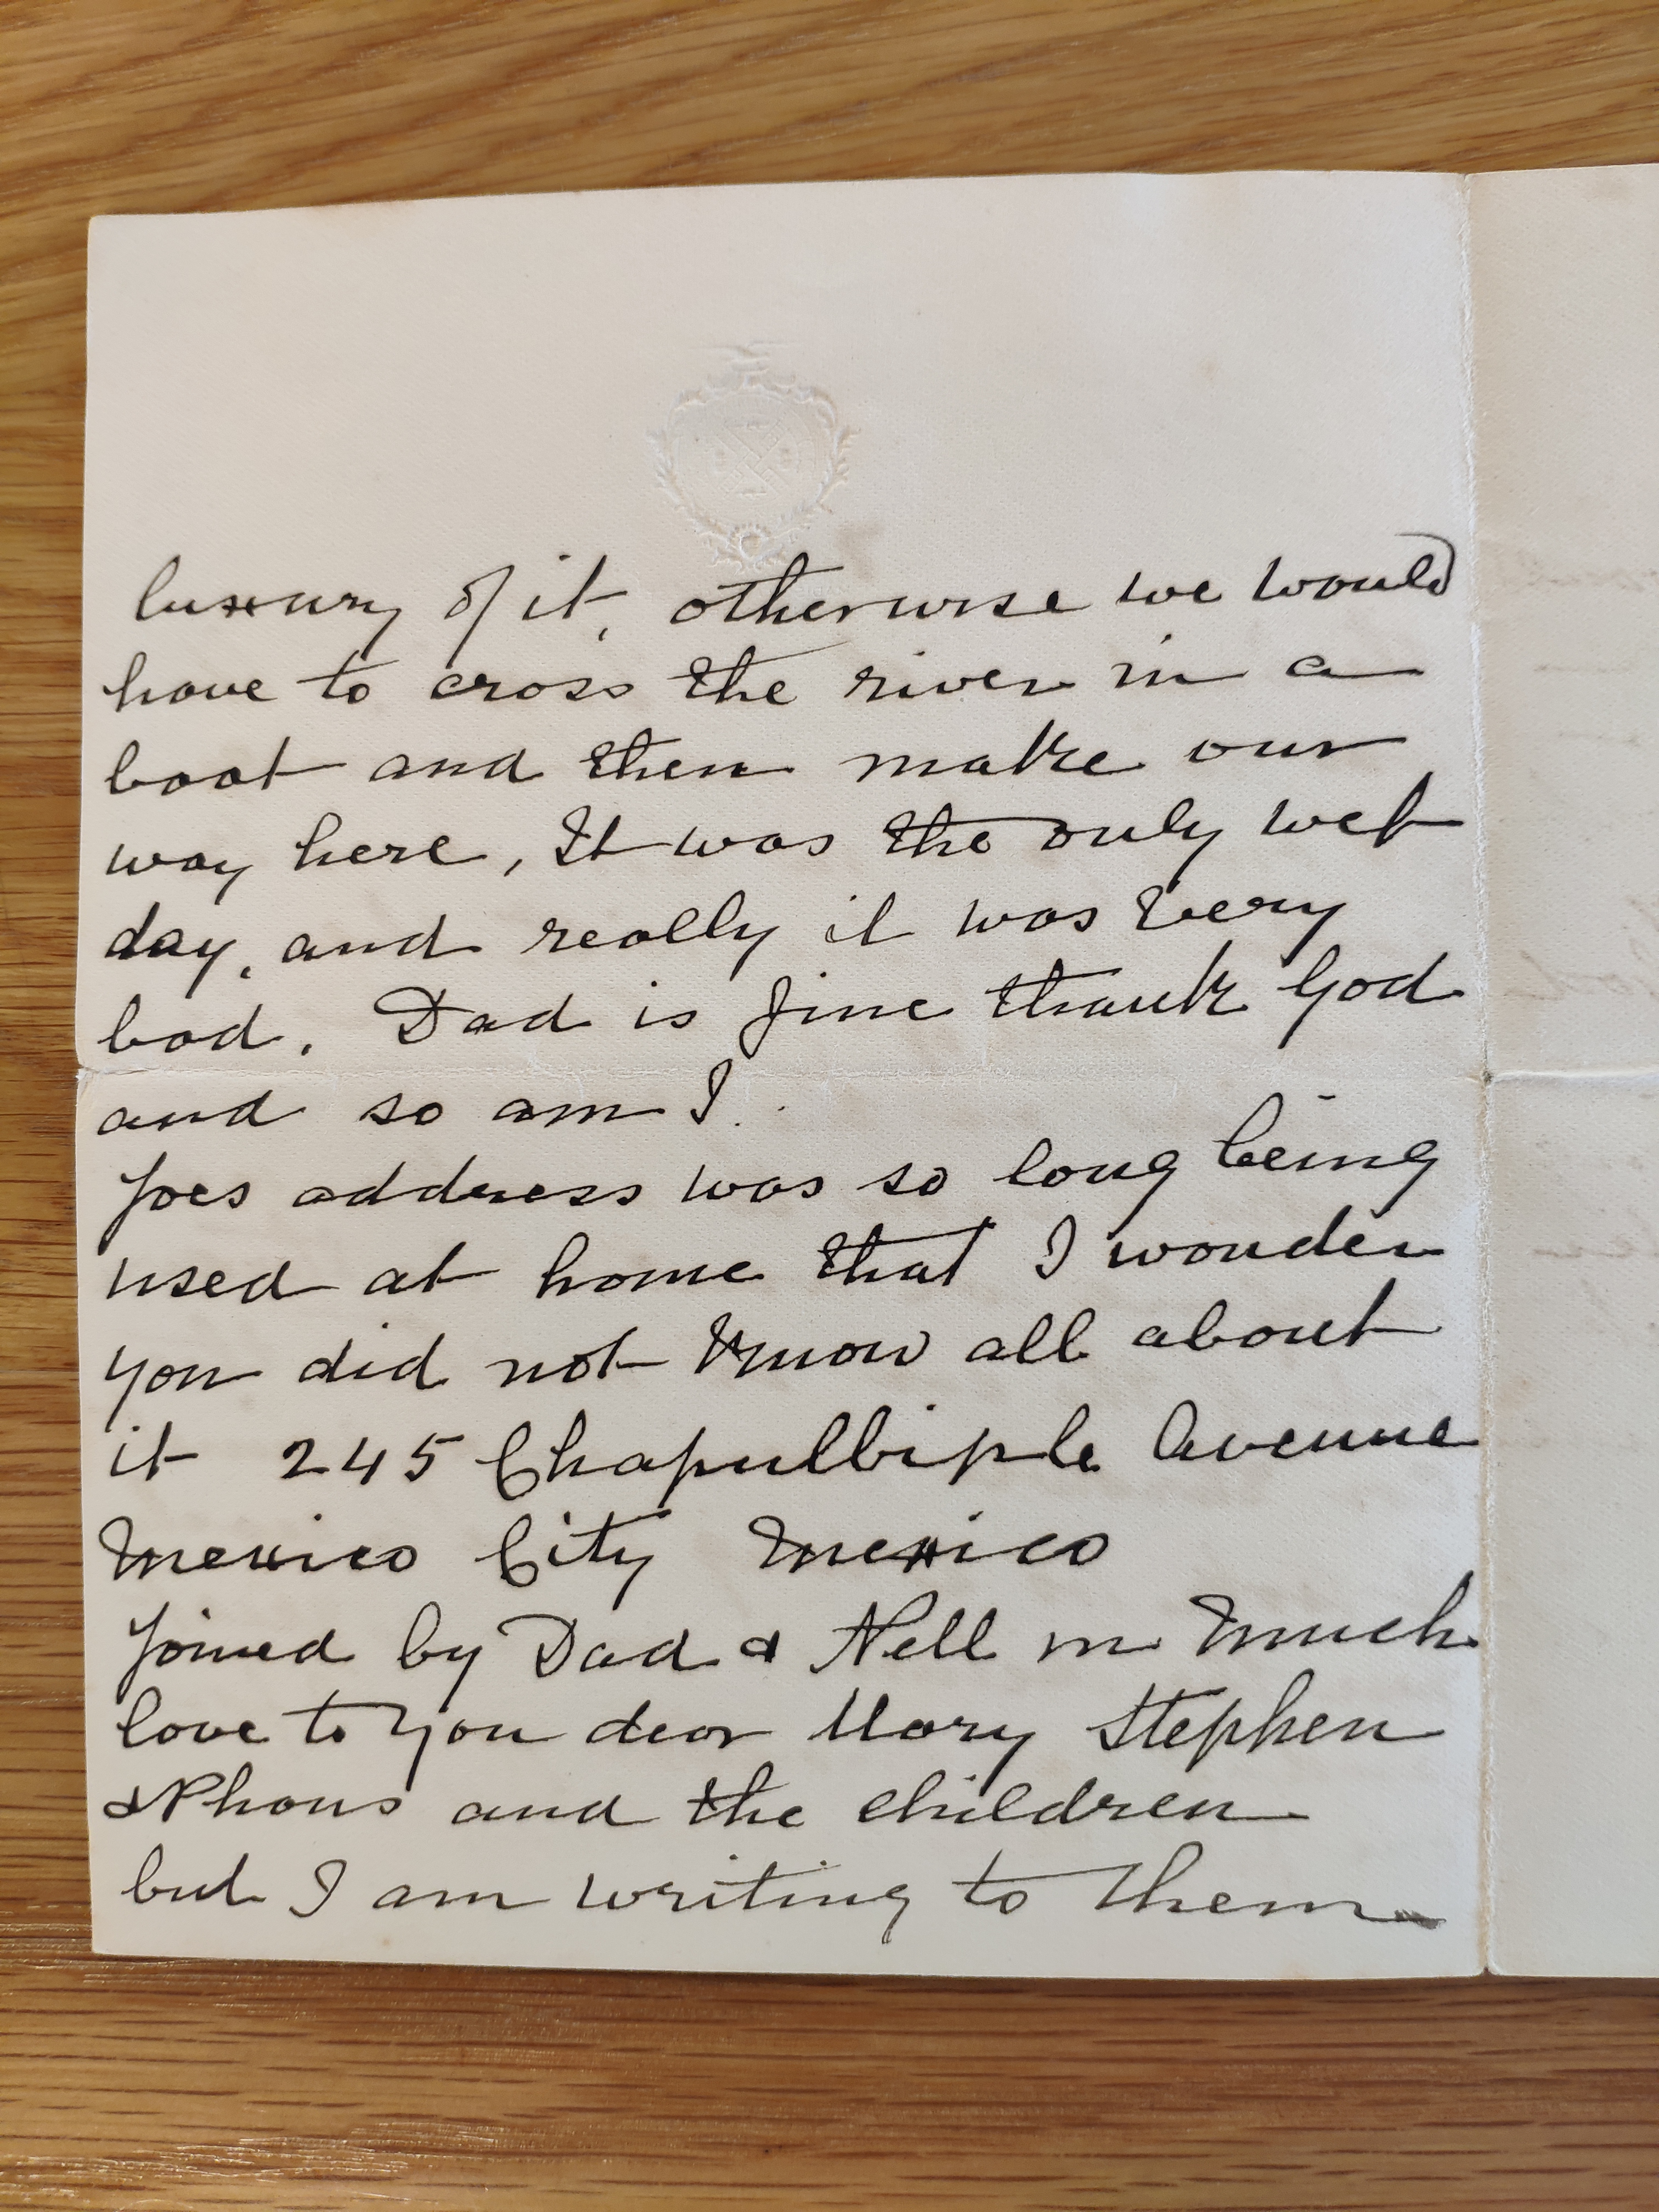 luxury of it, otherwise we would
have to cross the river in a
boat and then make our
way here, It was the only wet
day, and really it was very
bad. Dad is fine thank God
and so am I.
Joes address was so long being
used at home that I wonder
you did not know all about
it 245 Chapulbiple Avenue
Mexico City Mexico
Joined by Dad & Nell in much
love to you dear Mary Stephen
& Phons and the children
but I am writing to them